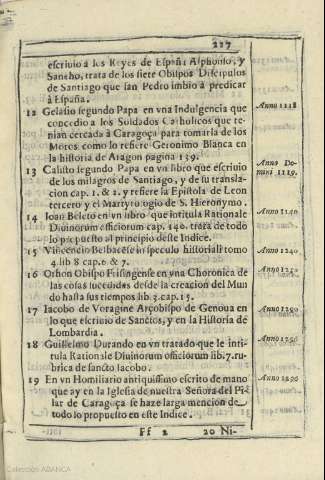 227
escriuio à los Reyes de España Alphonso, y
Sancho, trata de los siete Obispos Discipulos
de Santiago que san Pedro imbio à predicar
à España.
12 Gelasio segundo Papa en vna Indulgencia que Anno 1118
concedio a los Soldados Catholicos que te-
nian cercada à Caragoça para tomarla de los
Moros como lo refiere Geronimo Blanca en
la historia de Aragon pagina 139.
13 Calisto segundo Papa en vn libro que escriuio Anno Do-
de los milagros de Santiago, y de su transla- mini 1119.
cion cap. 1. & 2. y refiere la Epistola de Leon
tercero y el Martyrologio de S. Hieronymo.
14 Ioan Beleto en vn libro que intitula Rationale Anno 1140
Diuinorum officiorum cap. 140. trata de todo
lo propuesto al principio deste Indice.
15 Vincencio Belbacese in speculo historiali tomo Anno 1240
4. lib 8 cap. 6 & 7.
16 Othon Obispo Frisingense en vna Choronica de Anno 1250
las cosas sucedidas desde la creacion del Mun
do hasta sus tiempos lib. 3. cap. 15.
17 Iacobo de Voragine Arçobispo de Genoua en Anno 1290
lo que escriuio de Sanctos, y en la Historia de
Lombardia.
18 Guillelmo Durando en vn tratado que le inti- Anno 1290
tula Rationale Diuinorum officiorum lib. 7. ru-
brica de sancto Iacobo.
19 En vn Homiliario antiquissimo escrito de mano Anno 1290
que ay en la Iglesia de nuestra Señora del Pi-
lar de Caragoça se haze larga mencion de
todo lo propuesto en este Indice.
Ff 2 20 Ni-
Colección ABANCA